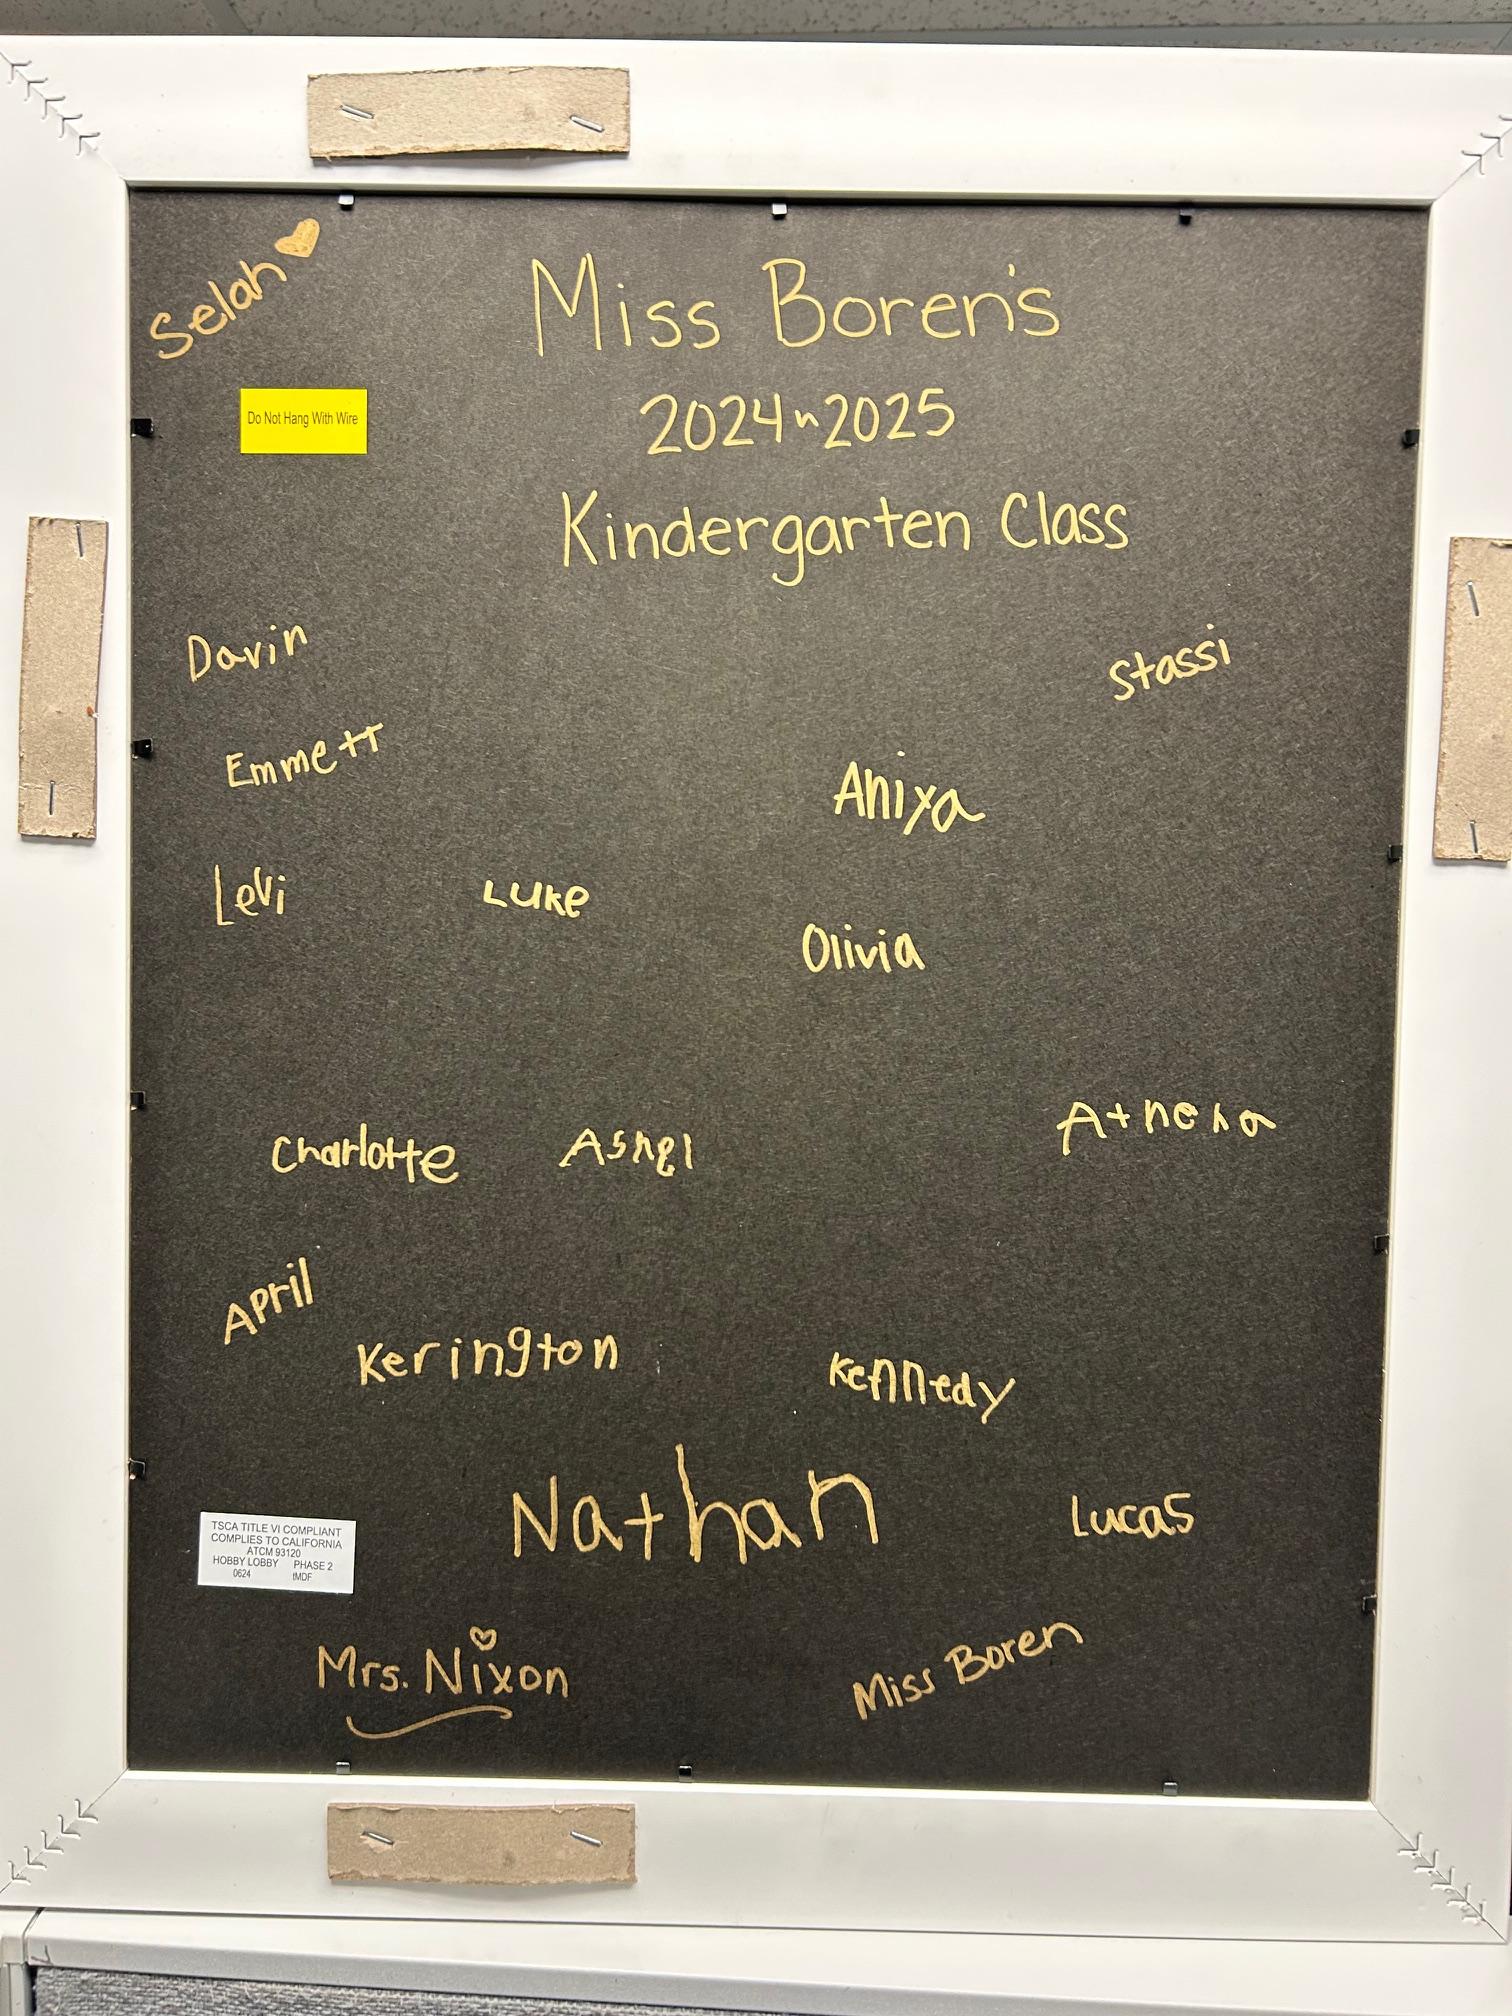 Selah
Miss Boren's
Do Not Hang With Wire
2024~2025
Kindergarten Class
Davin
Stassi
Emmett
Aniya
Levi
Luke
Olivia
Charlotte
Ashel
Athena
April
Kerington
Kennedy
Nathan
Lucas
TSCA TITLE VI COMPLIANT
COMPLIES TO CALIFORNIA
ATCM 93120
HOBBY LOBBY PHASE 2
0624 tMDF
Mrs. Nixon
Miss Boren